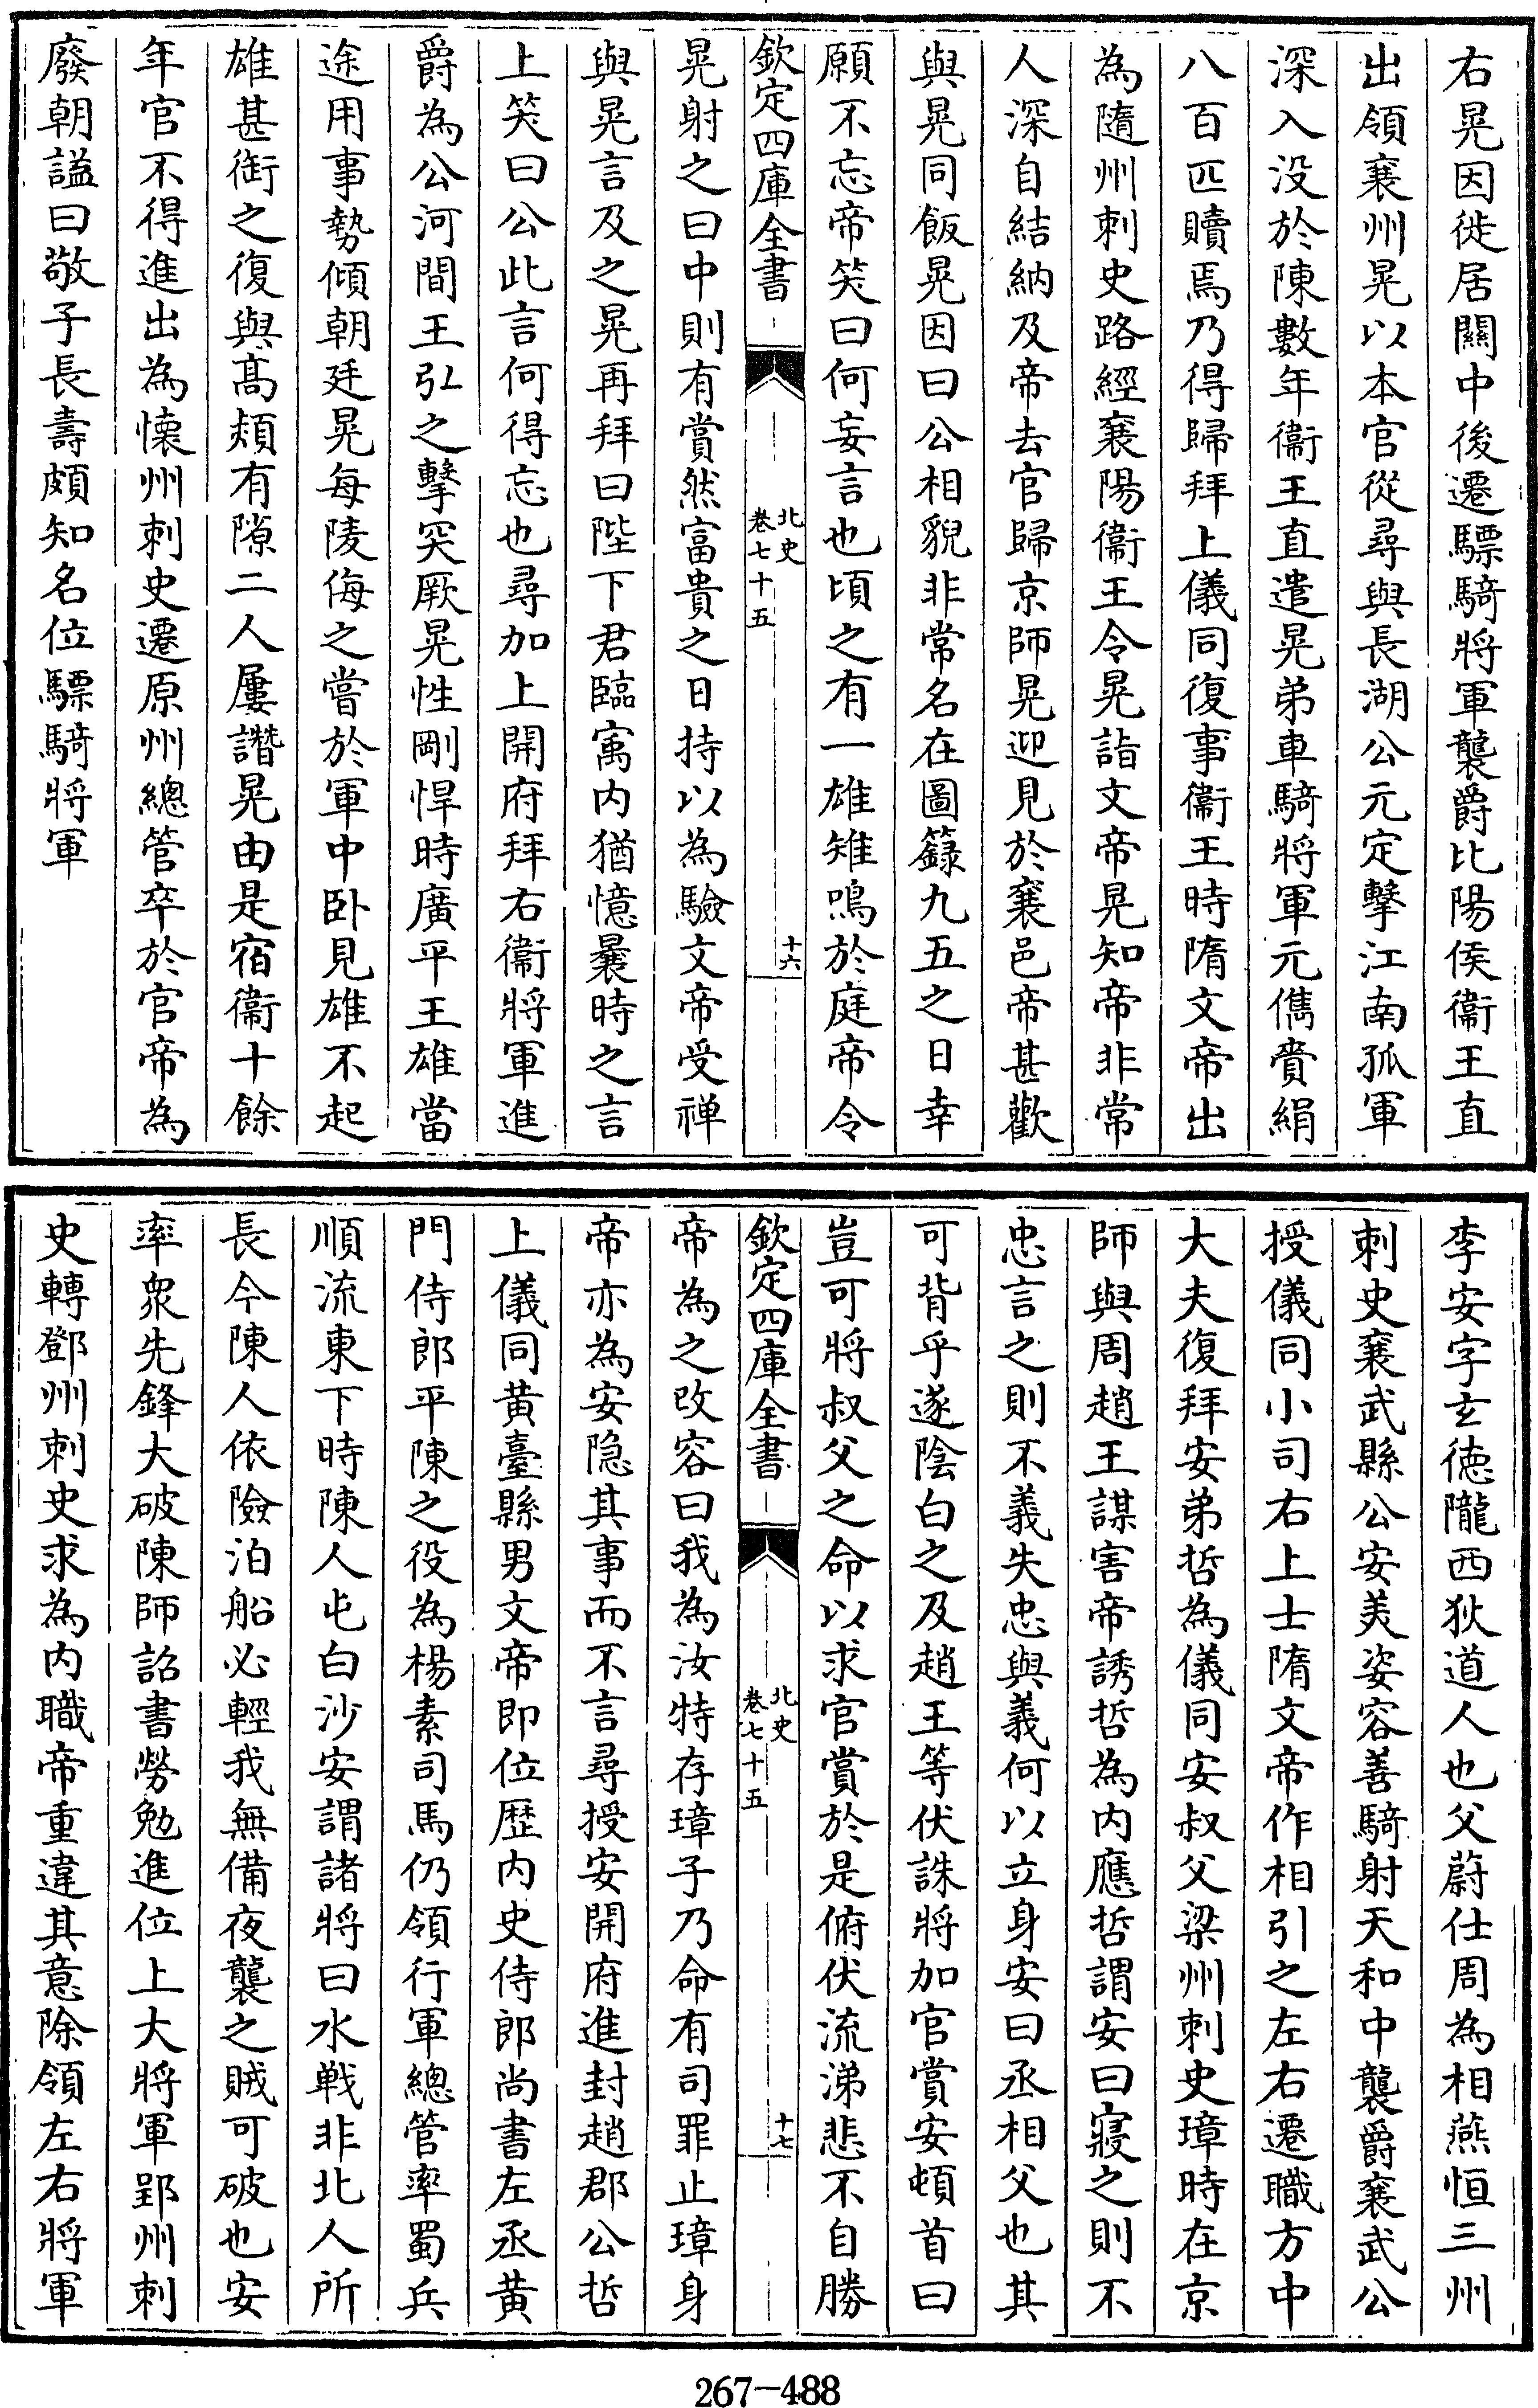 右晃因徙居關中後遷驃騎將軍襲爵比陽侯衞王直
出領襄州晃以本官從尋與長湖公元定擊江南孤軍
深入没於陳數年衞王直遣晃弟車騎將軍元儁賫絹
八百匹贖焉乃得歸拜上儀同復事衞王時隋文帝出
為隨州刺史路經襄陽衞王令晃詣文帝晃知帝非常
人深自結納及帝去官歸京師晃迎見於襄邑帝甚歡
與晃同飯晃因曰公相貌非常名在圖籙九五之日幸
願不忘帝笑曰何妄言也頃之有一雄雉鳴於庭帝令
欽定四庫全書
北史
卷七十五
十六
晃射之曰中則有賞然富貴之日持以為驗文帝受禅
與晃言及之晃再拜曰陛下君臨寓内猶憶曩時之言
上笑曰公此言何得忘也尋加上開府拜右衞將軍進
爵為公河間王弘之擊突厥晃性剛悍時廣平王雄當
途用事勢傾朝廷晃每陵侮之嘗於軍中卧見雄不起
雄甚銜之復與高熲有隙二人屢譖晃由是宿衞十餘
年官不得進出為懷州刺史遷原州總管卒於官帝為
廢朝諡曰敬子長壽頗知名位驃騎將軍
李安字玄徳隴西狄道人也父蔚仕周為相燕恒三州
刺史襄武縣公安美姿容善騎射天和中襲爵襄武公
授儀同小司右上士隋文帝作相引之左右遷職方中
大夫復拜安弟哲為儀同安叔父梁州刺史璋時在京
師與周趙王謀害帝誘哲為内應哲謂安曰寢之則不
忠言之則不義失忠與義何以立身安曰丞相父也其
可背乎遂陰白之及趙王等伏誅將加官賞安頓首曰
豈可將叔父之命以求官賞於是俯伏流涕悲不自勝
欽定四庫全書
北史
卷七十五
十七
帝為之改容曰我為汝特存璋子乃命有司罪止璋身
帝亦為安隐其事而不言尋授安開府進封趙郡公哲
上儀同黄臺縣男文帝即位歴内史侍郎尚書左丞黄
門侍郎平陳之役為楊素司馬仍領行軍總管率蜀兵
順流東下時陳人屯白沙安謂諸將曰水戰非北人所
長今陳人依險泊船必輕我無備夜襲之賊可破也安
率衆先鋒大破陳師詔書勞勉進位上大將軍郢州刺
史轉鄧州刺史求為内職帝重違其意除領左右將軍
267-488